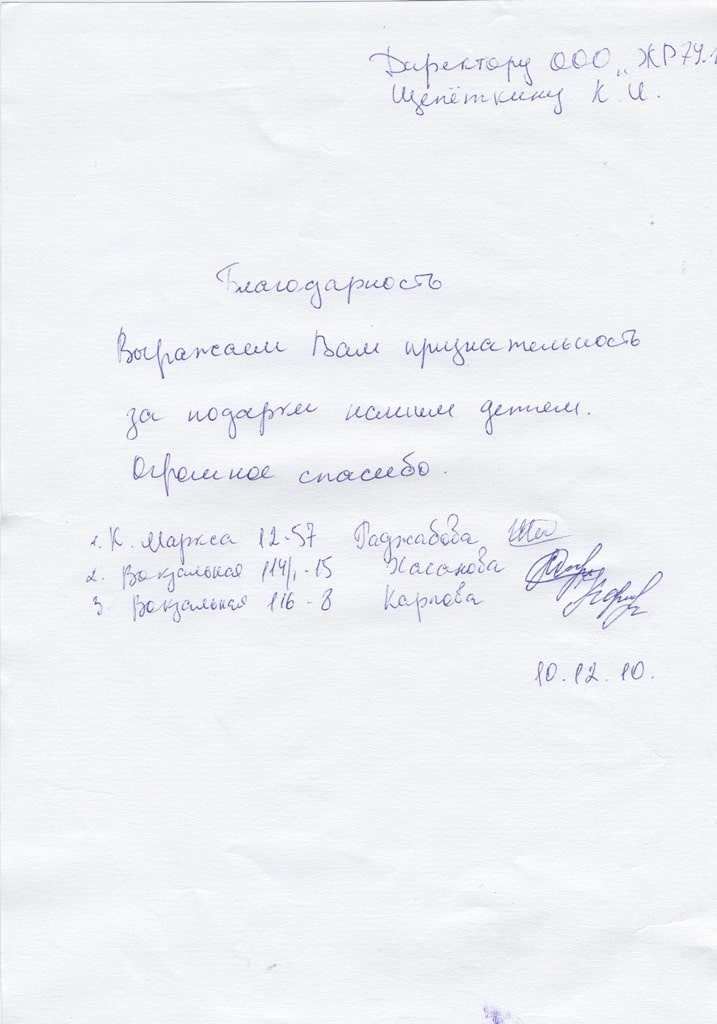 Директору ООО „ЖРЭУ-1
Щепёткину К. И.
Благодарность
Выражаем Вам признательность
за подарки нашим детям.
Огромное спасибо.
1. К. Маркса 12-57 Раджабова
2. Вокзальная 114/1-15 Хасанова
3. Вокзальная 116-8 Карпова
10.12.10.